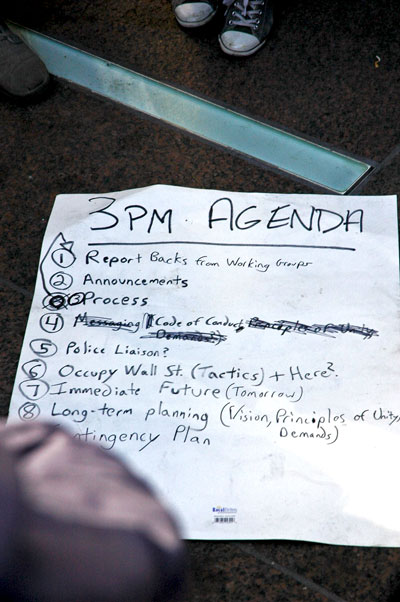 3PM. AGENDA
① Report Backs from Working Groups
② Announcements
② Process
④ Messaging Code of Conduct, Principles of Unity,
Demands?)
⑤ Police Liaison?
⑥ Occupy Wall St. (Tactics) + Here?.
⑦ Immediate Future (Tomorrow)
⑧ Long-term planning (Vision, Principles of Unity,
Demands)
Contingency Plan